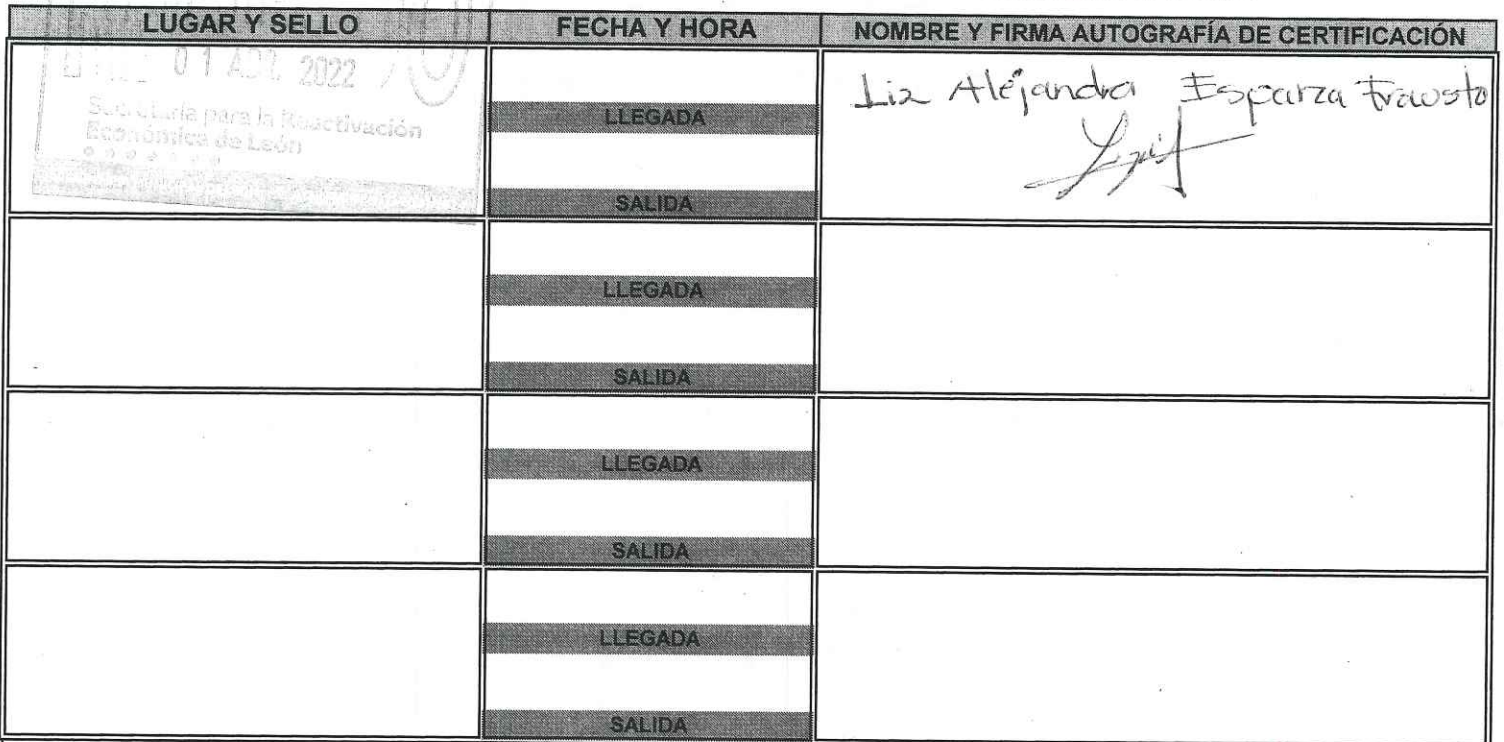 LUGAR Y SELLO FECHA Y HORA NOMBRE Y FIRMA AUTOGRAFÍA DE CERTIFICACIÓN
01 ABR. 2022
Secretaría para la Reactivación
Económica de León
Liz Alejandra Esparza Frausto
LLEGADA
SALIDA
LLEGADA
SALIDA
LLEGADA
SALIDA
LLEGADA
SALIDA